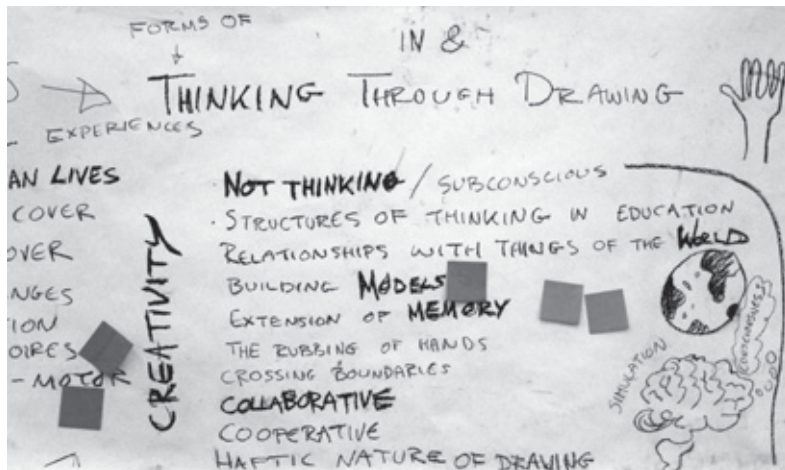 FORMS OF
IN &
THINKING THROUGH DRAWING
EXPERIENCES
AN LIVES
COVER
OVER
NGES
TION
OIRES
- MOTOR
CREATIVITY
NOT THINKING / SUBCONSCIOUS
· STRUCTURES OF THINKING IN EDUCATION
RELATIONSHIPS WITH THINGS OF THE WORLD
BUILDING MODELS
EXTENSION OF MEMORY
THE RUBBING OF HANDS
CROSSING BOUNDARIES
COLLABORATIVE
COOPERATIVE
HAPTIC NATURE OF DRAWING
SIMULATION